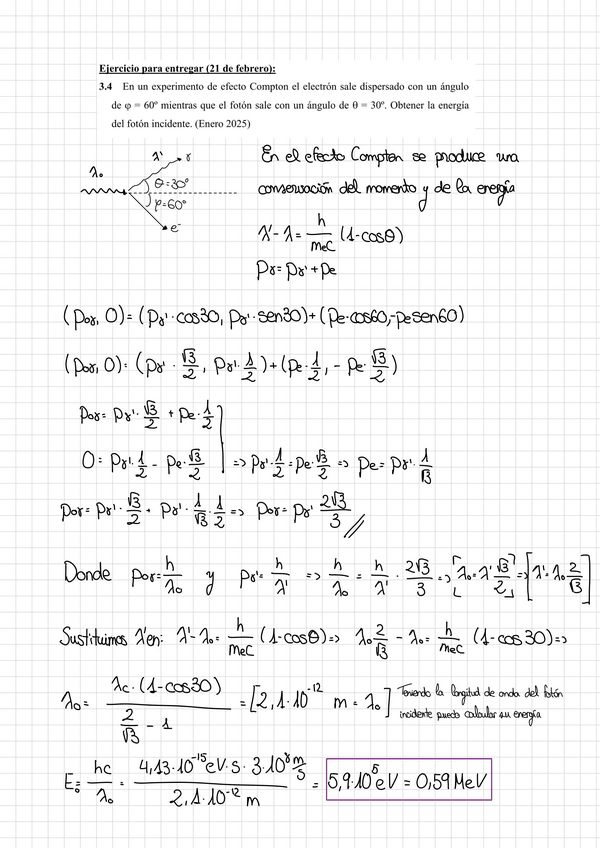 Ejercicio para entregar (21 de febrero):
3.4 En un experimento de efecto Compton el electrón sale dispersado con un ángulo
de φ = 60º mientras que el fotón sale con un ángulo de θ = 30º. Obtener la energía
del fotón incidente. (Enero 2025)
λ₀ λ' γ θ=30° φ=60° e⁻
En el efecto Compton se produce una
conservación del momento y de la energía
λ'-λ = h/mec (1-cosθ)
pγ = pγ' + pe
(p₀γ, 0) = (pγ'·cos30, pγ'·sen30) + (pe·cos60, -pe sen60)
(p₀γ, 0) = (pγ' · √3/2, pγ' · 1/2) + (pe · 1/2, - pe · √3/2)
p₀γ = pγ' · √3/2 + pe · 1/2
0 = pγ' · 1/2 - pe · √3/2 => pγ' · 1/2 = pe · √3/2 => pe = pγ' · 1/√3
p₀γ = pγ' · √3/2 + pγ' · 1/√3 · 1/2 => p₀γ = pγ' 2√3/3 //
Donde p₀γ = h/λ₀ y pγ' = h/λ' => h/λ₀ = h/λ' · 2√3/3 => [λ₀ = λ' √3/2] => [λ' = λ₀ 2/√3]
Sustituimos λ' en: λ'-λ₀ = h/mec (1-cosθ) => λ₀ 2/√3 - λ₀ = h/mec (1-cos30) =>
λ₀ = λc · (1-cos30) / (2/√3 - 1) = [2,1·10⁻¹² m = λ₀] Teniendo la longitud de onda del fotón
incidente puedo calcular su energía
E₀ = hc/λ₀ = 4,13·10⁻¹⁵ eV·s · 3·10⁸ m/s / 2,1·10⁻¹² m = 5,9·10⁵ eV = 0,59 MeV